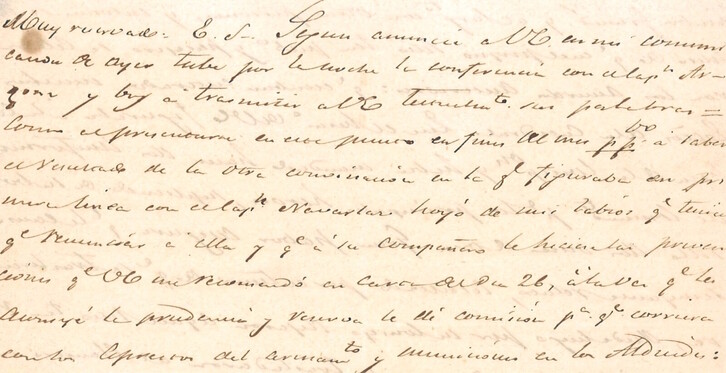 Muy reservado. E. S. Segun anuncié a VE en mi comuni
cacion de ayer tube por la noche la conferencia con el capn Ara
gon y boy a trasmitir a VE testualmte sus palabras =
Como al presentarse en este punto en fines del mes ppdo a saber
el resultado de la otra convinacion en la qe figuraba en pri
mera linea con el capn Navastas hoyó de mis labios qe tenia
qe renunciar a ella y qe a su compañero le hiciera las preven
ciones qe VE me recomendó en carta del dia 26, a la vez qe les
aconsejé la prudencia y reserva le dí comision pa qe corriera
con los aprestos del armamto y municiones en los Alduides: